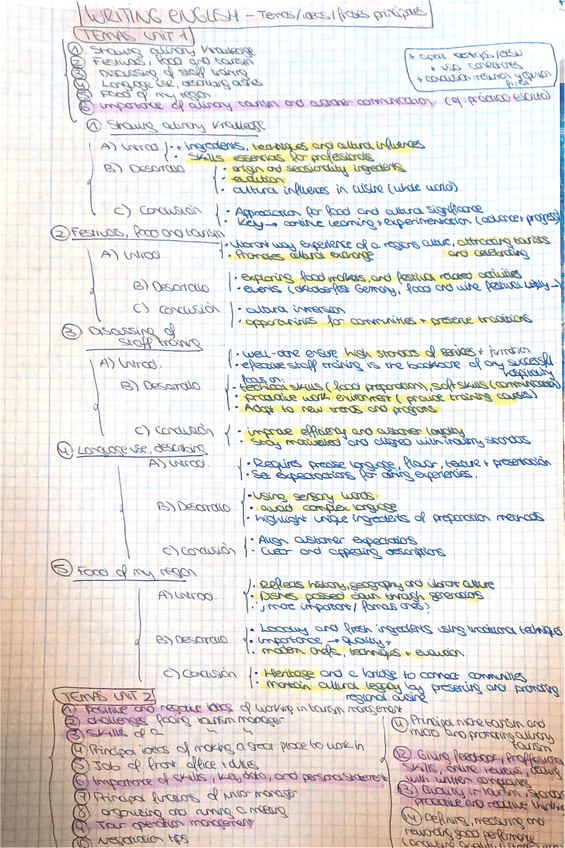 WRITING ENGLISH - Temas/ideas/frases principales
TEMAS UNIT 1
① Showing culinary knowledge
② Festivals, food and tourism
③ Discussing of staff training
④ Language use, describing
⑤ Food of my region
⑥ Importance of culinary tourism and customer communication (ej. práctico escrito)
+ uso conectores
① Showing culinary knowledge
A) Introd. • Ingredients, techniques and cultural influences
• Skills essentials for professionals
B) Desarrollo • origin and seasonality ingredients
• evolution
• cultural influences in cuisine (whole world)
C) Conclusión • Appreciation for food and cultural significance
• Key → continue learning + experimentation (advance + progress)
② Festivals, food and tourism
A) Introd. • Vibrant way experience of a regions culture, attracting tourists
• Promotes cultural exchange and celebrating
B) Desarrollo • exploring food markets, and festival related activities
• events (oktoberfest Germany, food and wine festival
C) Conclusión • cultural inmersion
• opportunities for communities + preserve traditions
③ Discussing of staff training
A) Introd. • well-done ensure high standars of services +
• efective staff training is the backbone of any successful hospitality
B) Desarrollo focus on:
• technical skills (food preparation, soft skills (communication)
• productive work enviroment (provide training courses)
• Adapt to new trends and programs
C) Conclusión • improve efficacy and customer loyalty
• stay motivated and aligned with industry standars
④ Language use, describing
A) Introd. • Requires precise language, flavor, texture + presentation
• Set expectations for dining experiences.
B) Desarrollo • Using sensory words
• avoid complex language
• highlight unique ingredients of preparation methods
C) Conclusión • Align customer expectations
• Clear and appealing descriptions
⑤ Food of my region
A) Introd. • Reflects history, geography and vibrant culture
• Dishes passed down through generations
• ¿more important/famous ones?
B) Desarrollo • Locally and fresh ingredients using traditional techniques
• importance → quality +
• modern chefs, techniques + evolution
C) Conclusión • Heritage and a bridge to connect communities
• mantain cultural legacy by preserving and promoting
regional cuisine
TEMAS UNIT 2
① Positive and negative ideas of working in tourism management
② challenges facing tourism manager
③ Skills of a " "
④ Principal ideas of making a great place to work in
⑤ Job of front office + duties
⑥ Importance of skills, key, data, and personal statement
⑦ Principal functions of junior manager
⑧ organising and running a meeting
⑨ Tour operation management
⑩ Negotiation tips
⑪ Principal niche tourism and
and promoting culinary
tourism
⑫ Giving feedback, professional
skills, online reviews, dealing
with written complaints
⑬ Quality in tourism,
proactive and reactive thinking
⑭ Defining, measuring and
rewarding good performance